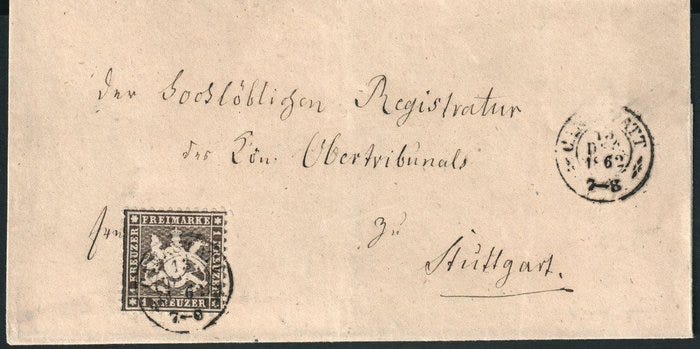 Der Hochlöblichen Registratur
des Kön. Obertribunals
zu
Stuttgart.
12
DEZ
1862
7-8
FREIMARKE
1 KREUZER
1 KREUZER
1 KREUZER
7-8